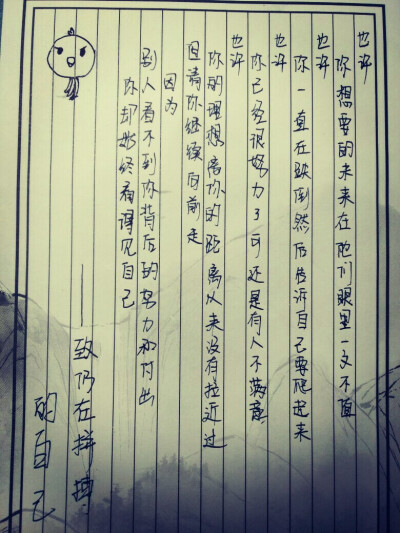 也许
你想要的未来在他们眼里一文不值
也许
你一直在跌倒然后告诉自己要爬起来
也许
你已经很努力了可还是有人不满意
也许
你的理想离你的距离从来没有拉近过
但请你继续向前走
因为
别人看不到你背后的努力和付出
你却始终看得见自己
——致仍在拼搏
的自己